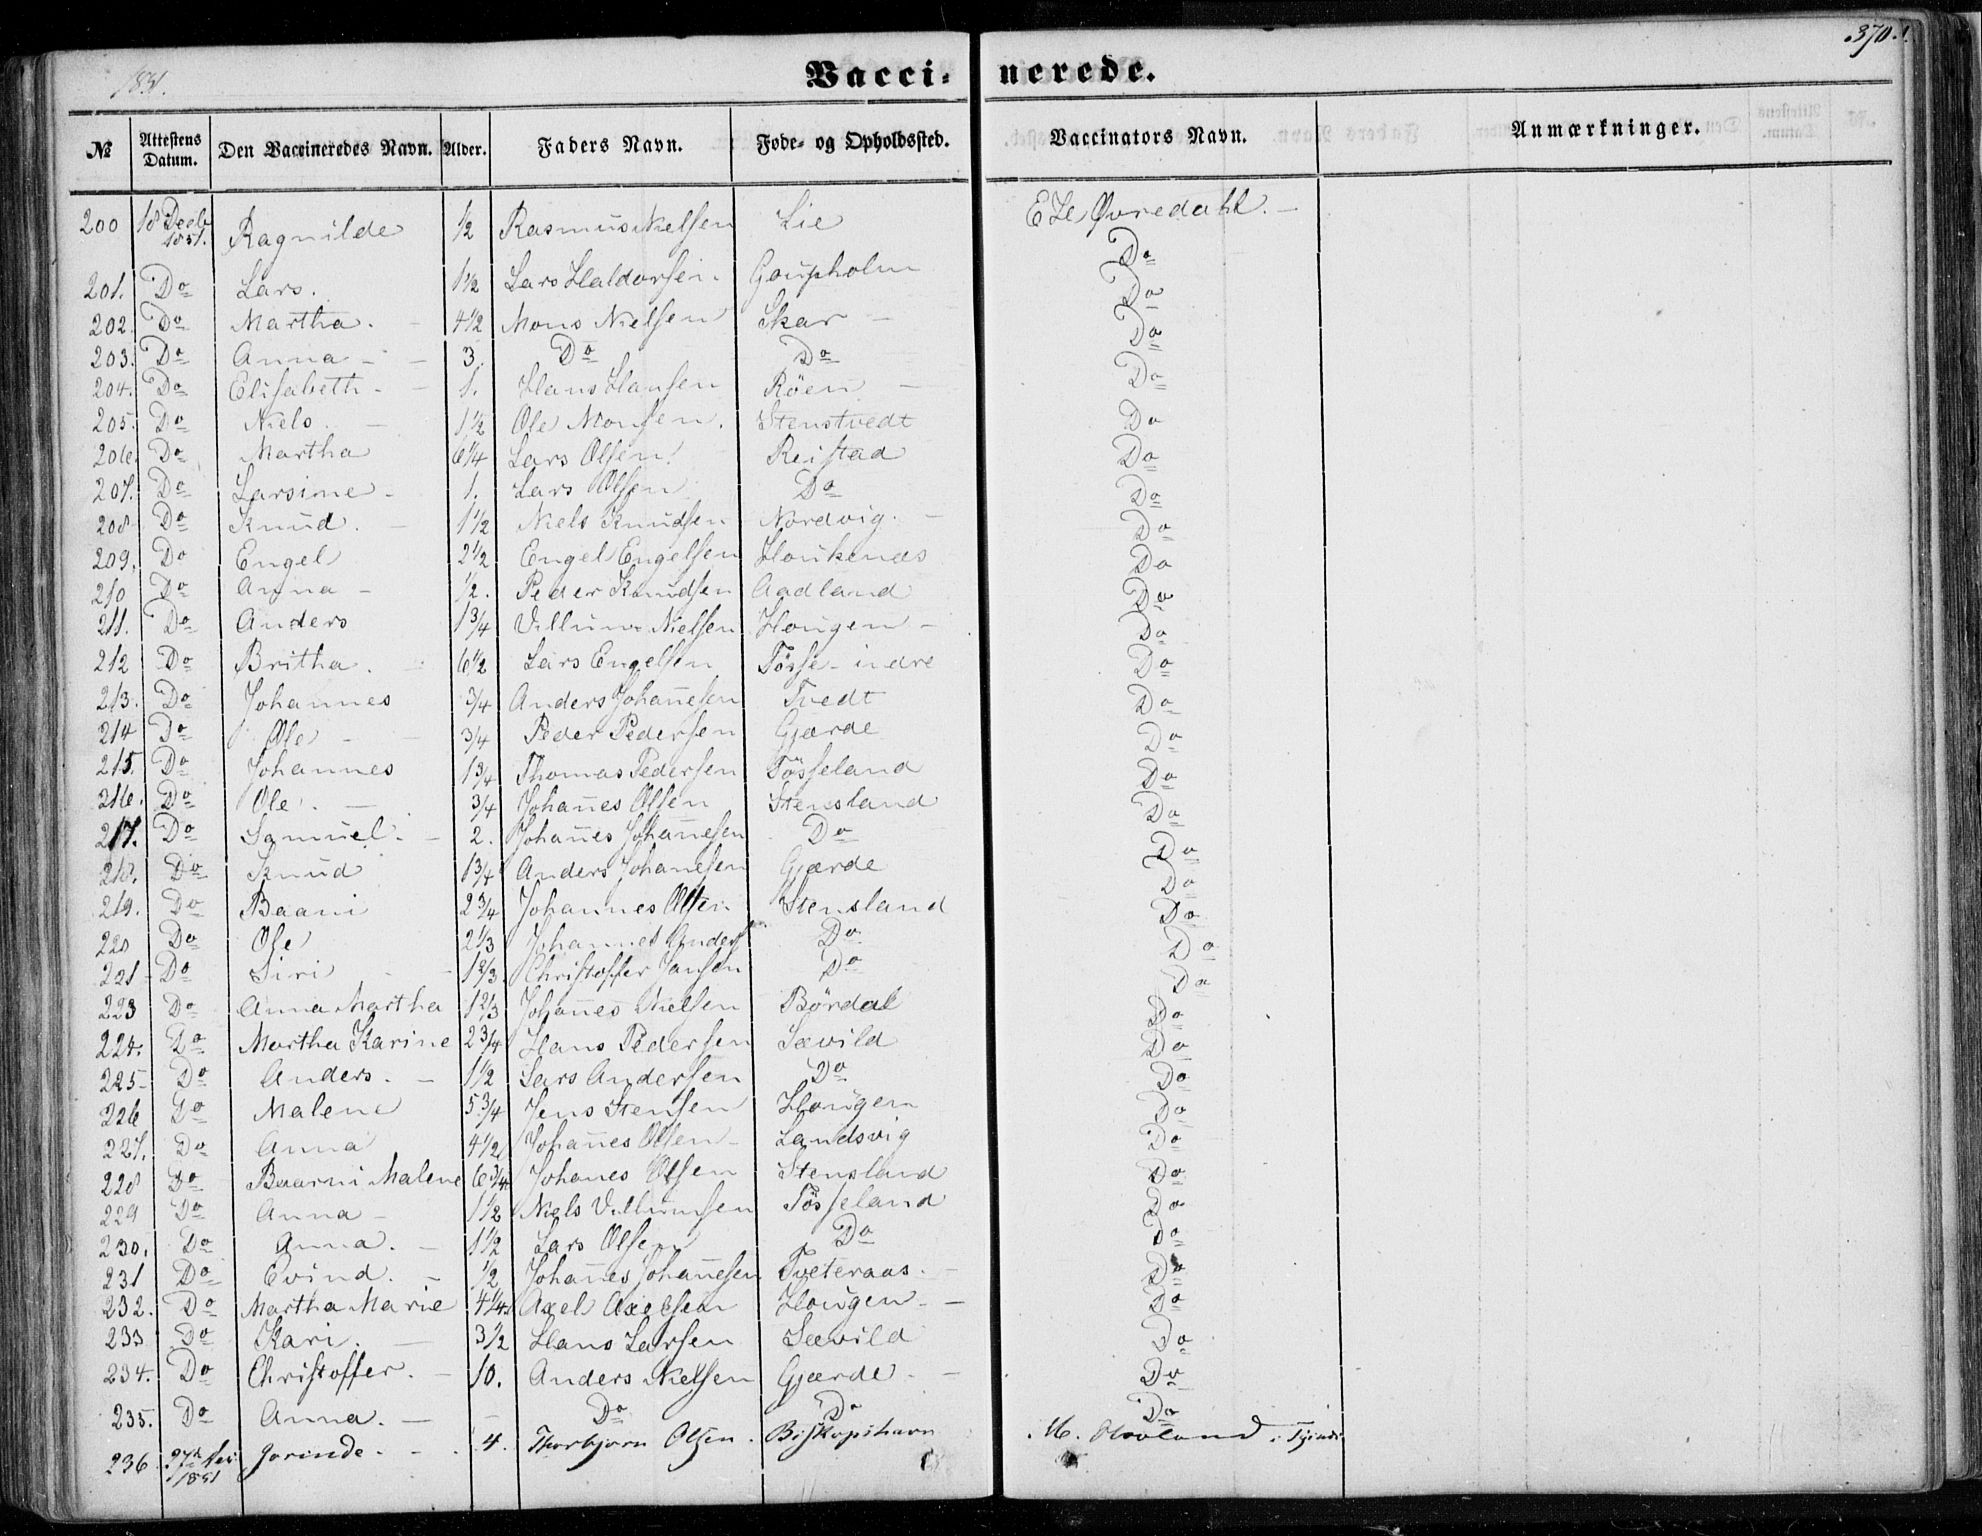 1851.
370.
Vacci- nerede.
№ Attestens Datum. Den Vaccineredes Navn. Alder. Faders Navn. Føde- og Opholdssted. Vaccinators Navn. Anmærkninger.
200 18 Decb 1851. Ragnilde 1/2 Rasmus Nielsen Lie Øvredahl.
201. Do Lars. 1 1/2 Lars Haldorsen Goupholm Do
202. Do Martha. 4 1/2 Mons Nielsen Skar Do
203. Do Anna 3. Do Do Do
204. Do Elisabeth 1. Hans Hansen Röen Do
205. Do Niels. 1 1/2 Ole Monsen. Stenstvedt Do
206. Do Martha 6 1/4 Lars Olsen. Reistad Do
207. Do Larsine 1. Lars Olsen Do Do
208 Do Knud. 1 1/2 Niels Knudsen Nordvig. Do
209. Do Engel 2 1/2 Engel Engelsen Houkenæs Do
210 Do Anna 1/2. Peder Knudsen Aadland Do
211. Do Anders 1 3/4 Villum Nielsen Hougen Do
212 Do Britha. 6 1/2 Lars Engelsen Tösse indre Do
213. Do Johannes 3/4 Anders Johañesen Tvedt Do
214 Do Ole 3/4 Peder Pedersen Gjærde Do
215. Do Johannes 1 3/4 Thomas Pedersen Tösseland Do
216. Do Ole. 3/4 Johañes Olsen Stensland Do
217. Do Samuel. 2. Johañes Johañesen Do Do
218. Do Knud 1 3/4 Anders Johanesen Gjærde Do
219. Do Baani 2 3/4 Johannes Olsen Stensland Do
220 Do Ole 2 1/3 Johannes Anders Do Do
221 Do Siri 1 2/3 Christoffer Jansen Do Do
223 Do Anna Martha 1 2/3 Johañes Nielsen Bördal Do
224. Do Martha Karine 2 3/4 Hans Pedersen Sævild Do
225 Do Anders. 1 1/2 Lars Andersen Do Do
226 Do Malene 5 3/4 Jens Stensen Hougen Do
227. Do Anna 4 1/2 Johañes Olsen Landsvig Do
228 Do Baarni Malene 6 3/4 Johanes Olsen Stensland Do
229 Do Anna 1 1/2 Niels Villumsen Tösseland Do
230. Do Anna. 1 1/2 Lars Olsen Do Do
231 Do Evind. 1/2 Johañes Johañesen Tveteraas. Do
232. Do Martha Marie 4 1/4 Axel Axelsen Hougen Do
233 Do Kari. 3 1/2 Hans Larsen Sævild Do
234. Do Christoffer. 10. Anders Nielsen Gjærde. Do
235. Do Anna. Do Do Do
236 27 1851 Jorinde 4. Thorbjørn Olsen. Biskopshavn M.